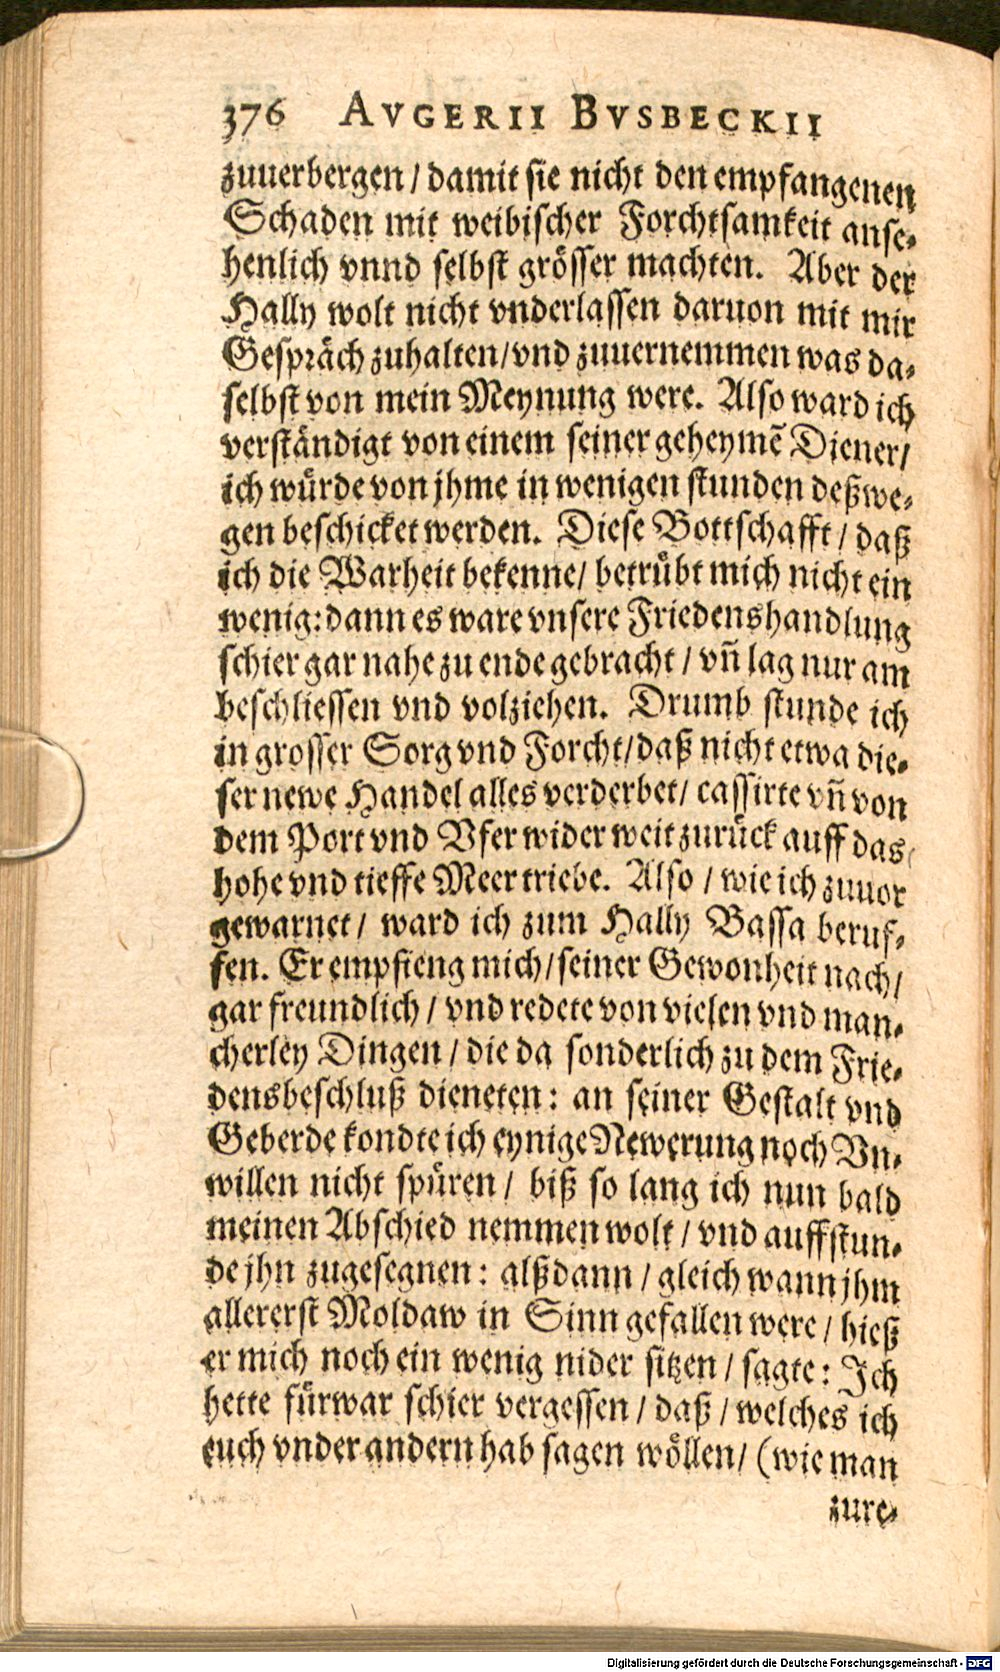 376 AVGERII BVSBECKII
zuuerbergen / damit sie nicht den empfangenen
Schaden mit weibischer Forchtsamkeit anse-
henlich vnnd selbst grösser machten. Aber der
Hally wolt nicht vnderlassen daruon mit mir
Gespräch zuhalten / vnd zuuernemmen was da-
selbst von mein Meynung were. Also ward ich
verständigt von einem seiner geheymē Diener /
ich würde von jhme in wenigen stunden deßwe-
gen beschicket werden. Diese Bottschafft / daß
ich die Warheit bekenne / betrübt mich nicht ein
wenig: dann es ware vnsere Friedenshandlung
schier gar nahe zu ende gebracht / vñ lag nur am
beschliessen vnd volziehen. Drumb stunde ich
in grosser Sorg vnd Forcht / daß nicht etwa die-
ser newe Handel alles verderbet / cassirte vñ von
dem Port vnd Vfer wider weit zurück auff das
hohe vnd tieffe Meer triebe. Also / wie ich zuuor
gewarnet / ward ich zum Hally Bassa beruf-
fen. Er empfieng mich / seiner Gewonheit nach /
gar freundlich / vnd redete von vielen vnd man-
cherley Dingen / die da sonderlich zu dem Frie-
densbeschluß dieneten: an seiner Gestalt vnd
Geberde kondte ich eynige Newerung noch Vn-
willen nicht spüren / biß so lang ich nun bald
meinen Abschied nemmen wolt / vnd auffstun-
de jhn zugesegnen: alßdann / gleich wann jhm
allererst Moldaw in Sinn gefallen were / hieß
er mich noch ein wenig nider sitzen / sagte: Ich
hette fürwar schier vergessen / daß / welches ich
euch vnder andern hab sagen wöllen / (wie man
zure-
Digitalisierung gefördert durch die Deutsche Forschungsgemeinschaft - DFG